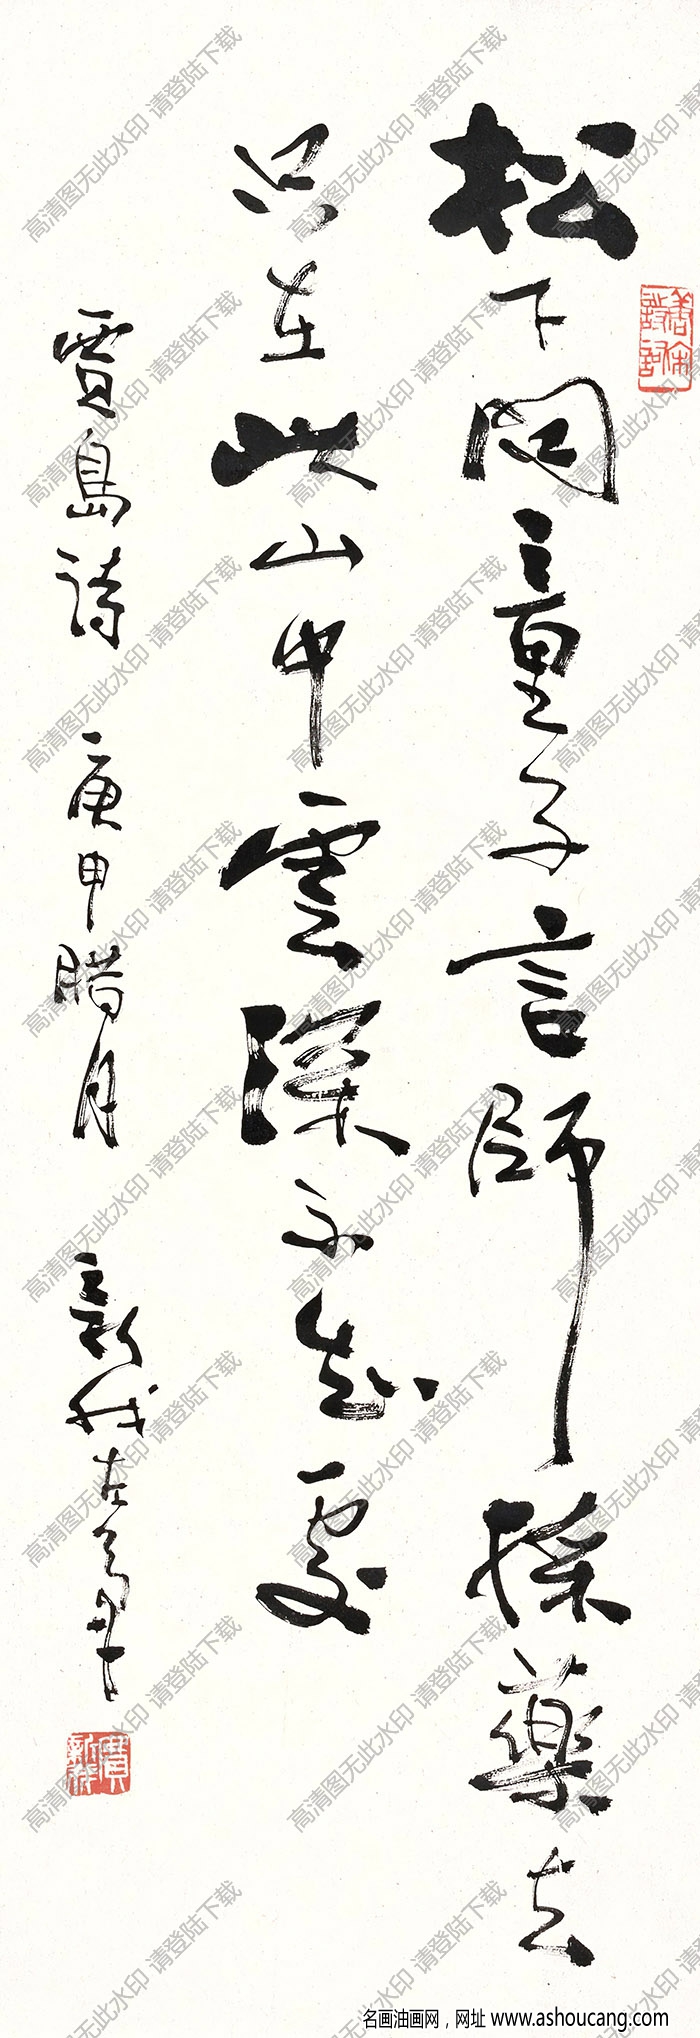 松下問童子言師採藥去
只在此山中雲深不知處
賈島詩 庚申腊月 新我左
費新我
高清图无此水印 请登陆下载
名画油画网，网址 www.ashoucang.com